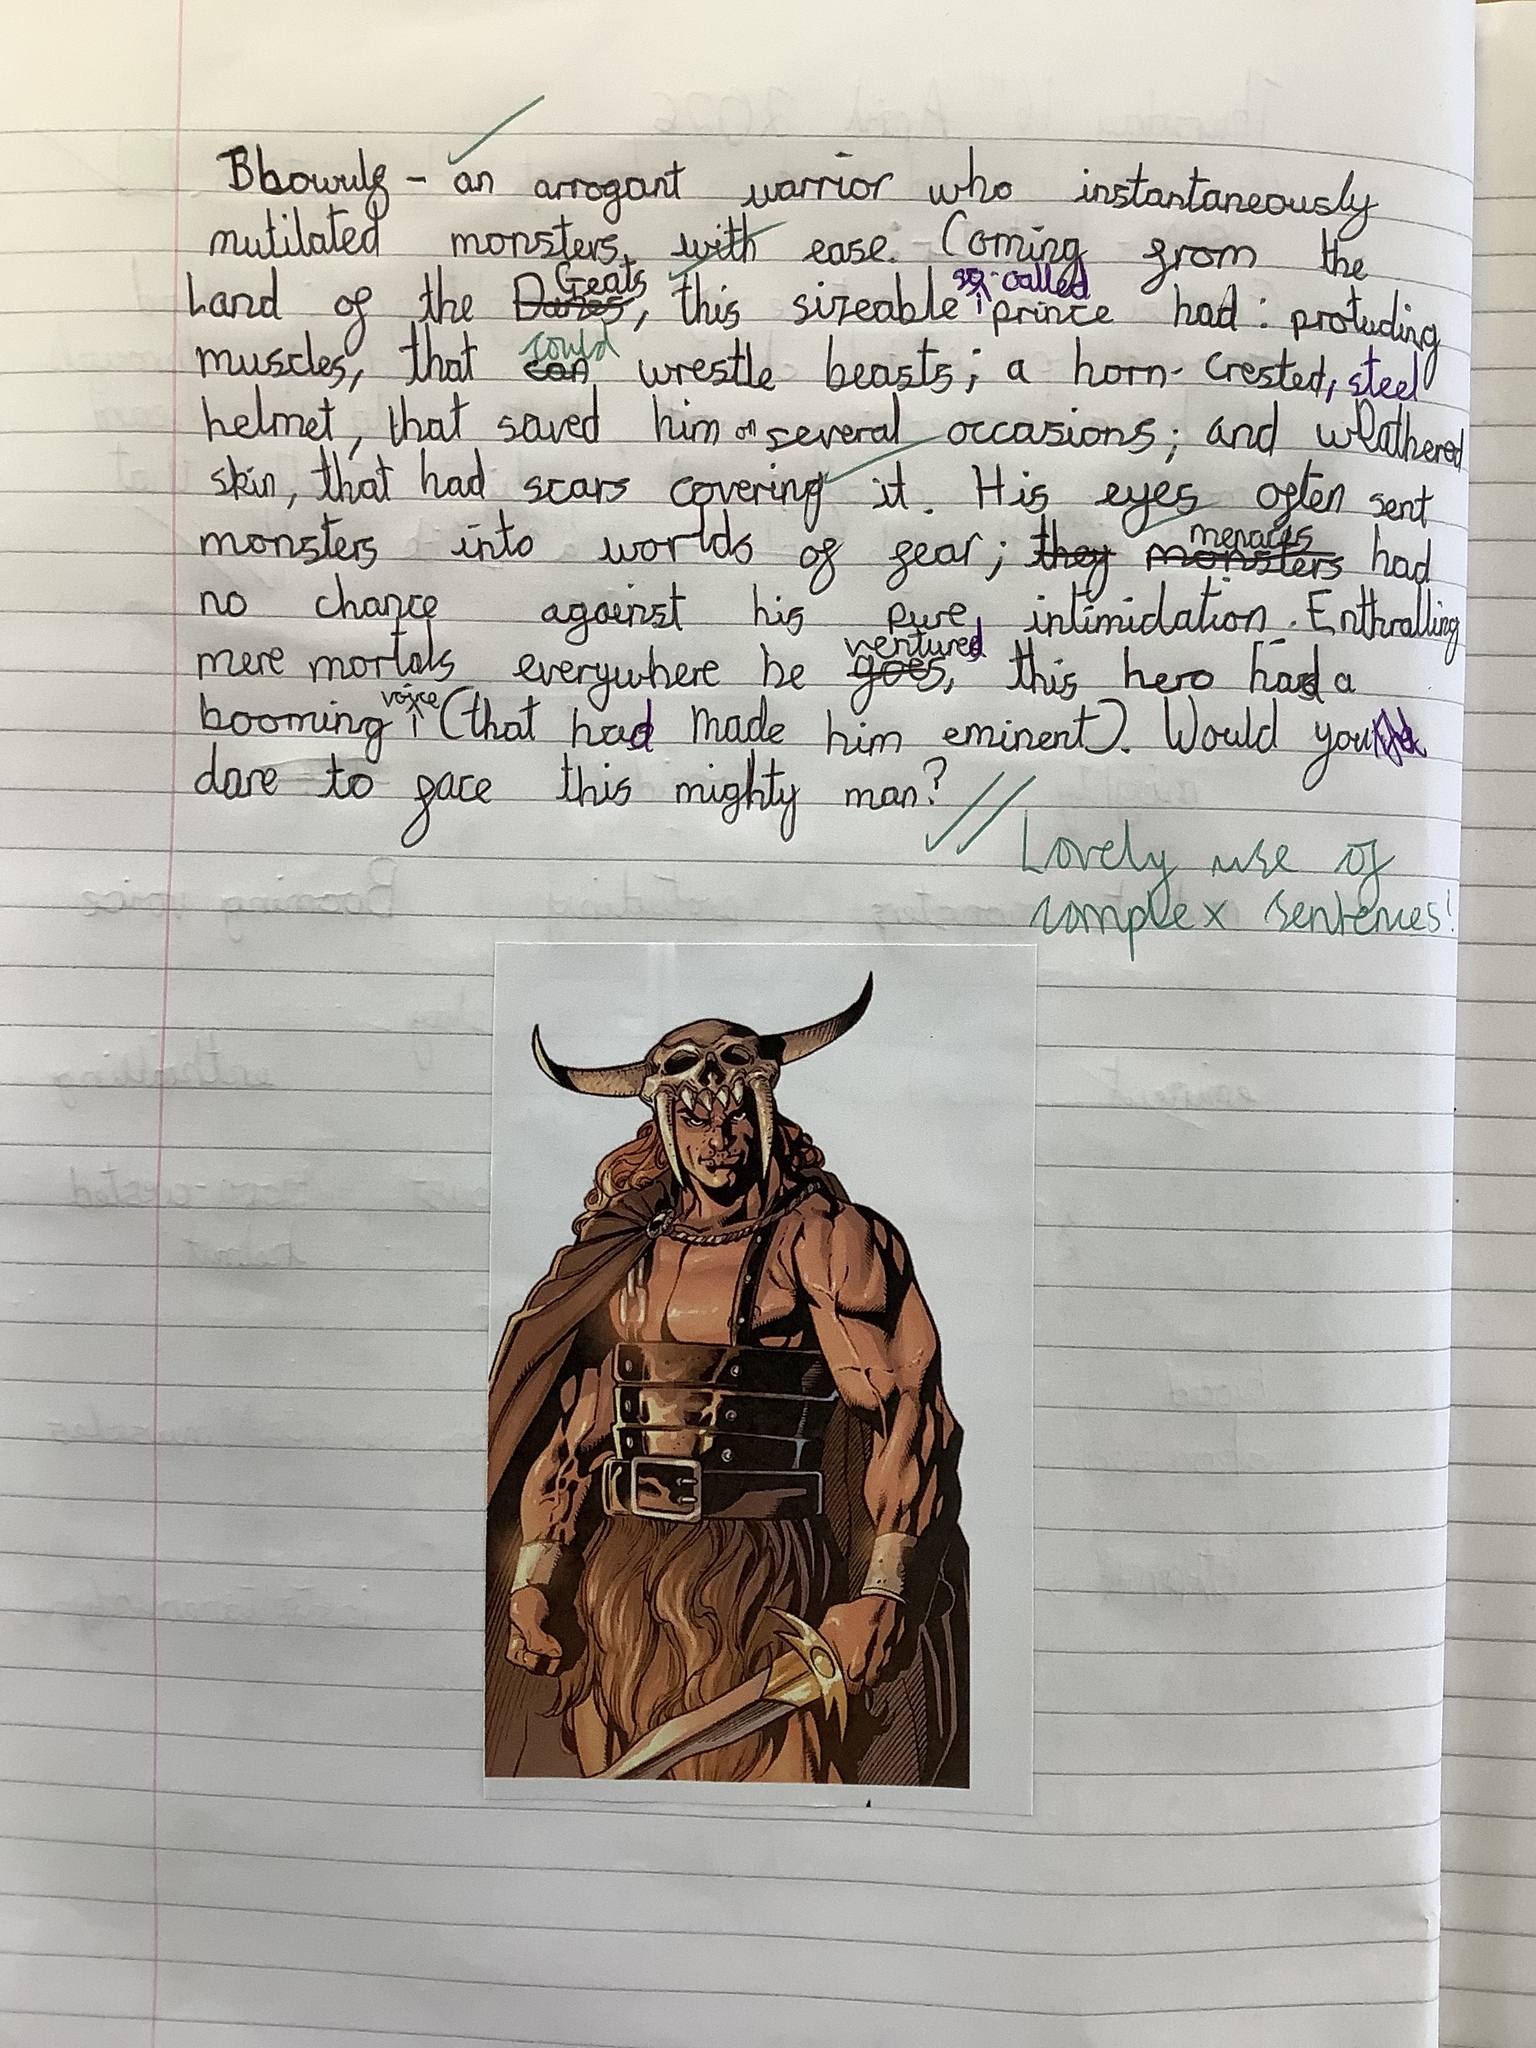 Bbowulf - an arrogant warrior who instantaneously
mutilated monsters, with ease. Coming from the
Land of the Danes Geats, this sizeable so-called prince had: protuding
muscles, that can could wrestle beasts; a horn-crested, steel
helmet, that saved him on several occasions; and weathered
skin, that had scars covering it. His eyes often sent
monsters into worlds of fear; they monsters menaces had
no chance against his pure intimidation. Enthralling
mere mortals everywhere he goes ventured, this hero had a
booming voice (that had made him eminent). Would you
dare to face this mighty man?
Lovely use of
complex sentences!